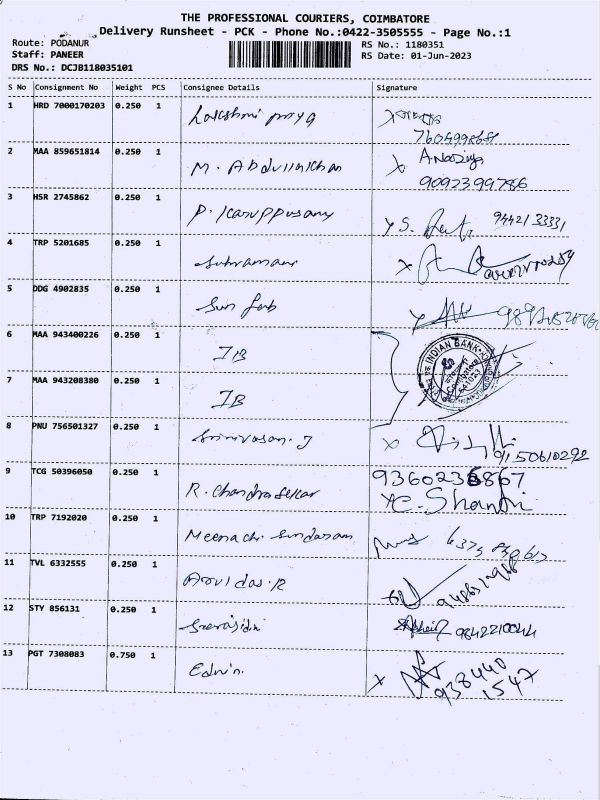 THE PROFESSIONAL COURIERS, COIMBATORE
Delivery Runsheet - PCK - Phone No.:0422-3505555 - Page No.:1
Route: PODANUR
RS No.: 1180351
Staff: PANEER
RS Date: 01-Jun-2023
DRS No.: DCJB118035101
S No Consignment No Weight PCS Consignee Details Signature
1 HRD 7000170203 0.250 1 Lakshmi priya
2 MAA 859651814 0.250 1 M. Abdullalkhan
9092399786
3 HSR 2745862 0.250 1 P. Karuppusamy 9442133331
4 TRP 5201685 0.250 1
5 DDG 4902835 0.250 1 Sun fab
6 MAA 943400226 0.250 1 IB
INDIAN BANK
7 MAA 943208380 0.250 1 IB
8 PNU 756501327 0.250 1 Srinivasan. J
9150610292
9 TCG 50396050 0.250 1 R. Chandrasekar
C. Shanthi
10 TRP 7192020 0.250 1 Meenachi Sundaram
11 TVL 6332555 0.250 1 Arovidas. R
12 STY 856131 0.250 1 9842210044
13 PGT 7308083 0.750 1 Edwin.
938440
1547